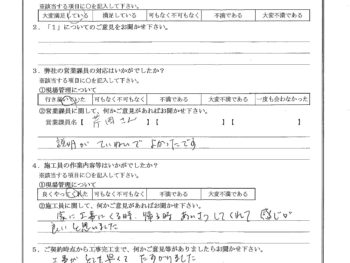 ※該当する項目に○を記入して下さい。
大変満足している 満足している 可もなく不可もなく 不満である 大変不満である
2.「1」についてのご意見をお聞かせ下さい。
3.弊社の営業課員の対応はいかがでしたか?
※該当する項目に○を記入して下さい。
①現場管理について
行き届いていた 可もなく不可もなく 不満である 大変不満である 一度も会わなかった
②営業課員に関して、何かご意見があればお聞かせ下さい。
営業課員名【 さん 】【 】【 】
説明がていねいでよかったです
4.施工員の作業内容等はいかがでしたか?
※該当する項目に○を記入して下さい。
①現場管理について
良くやってくれた 可もなく不可もなく 不満である 大変不満である
②施工員に関して、何かご意見があればお聞かせ下さい。
家に工事にくる時、帰る時あいさつしてくれて感じが
良いと思いました
5.ご契約時点から工事完工まで、何かご意見等がありましたらお聞かせ下さい。
工事がとても早くてたすかりました